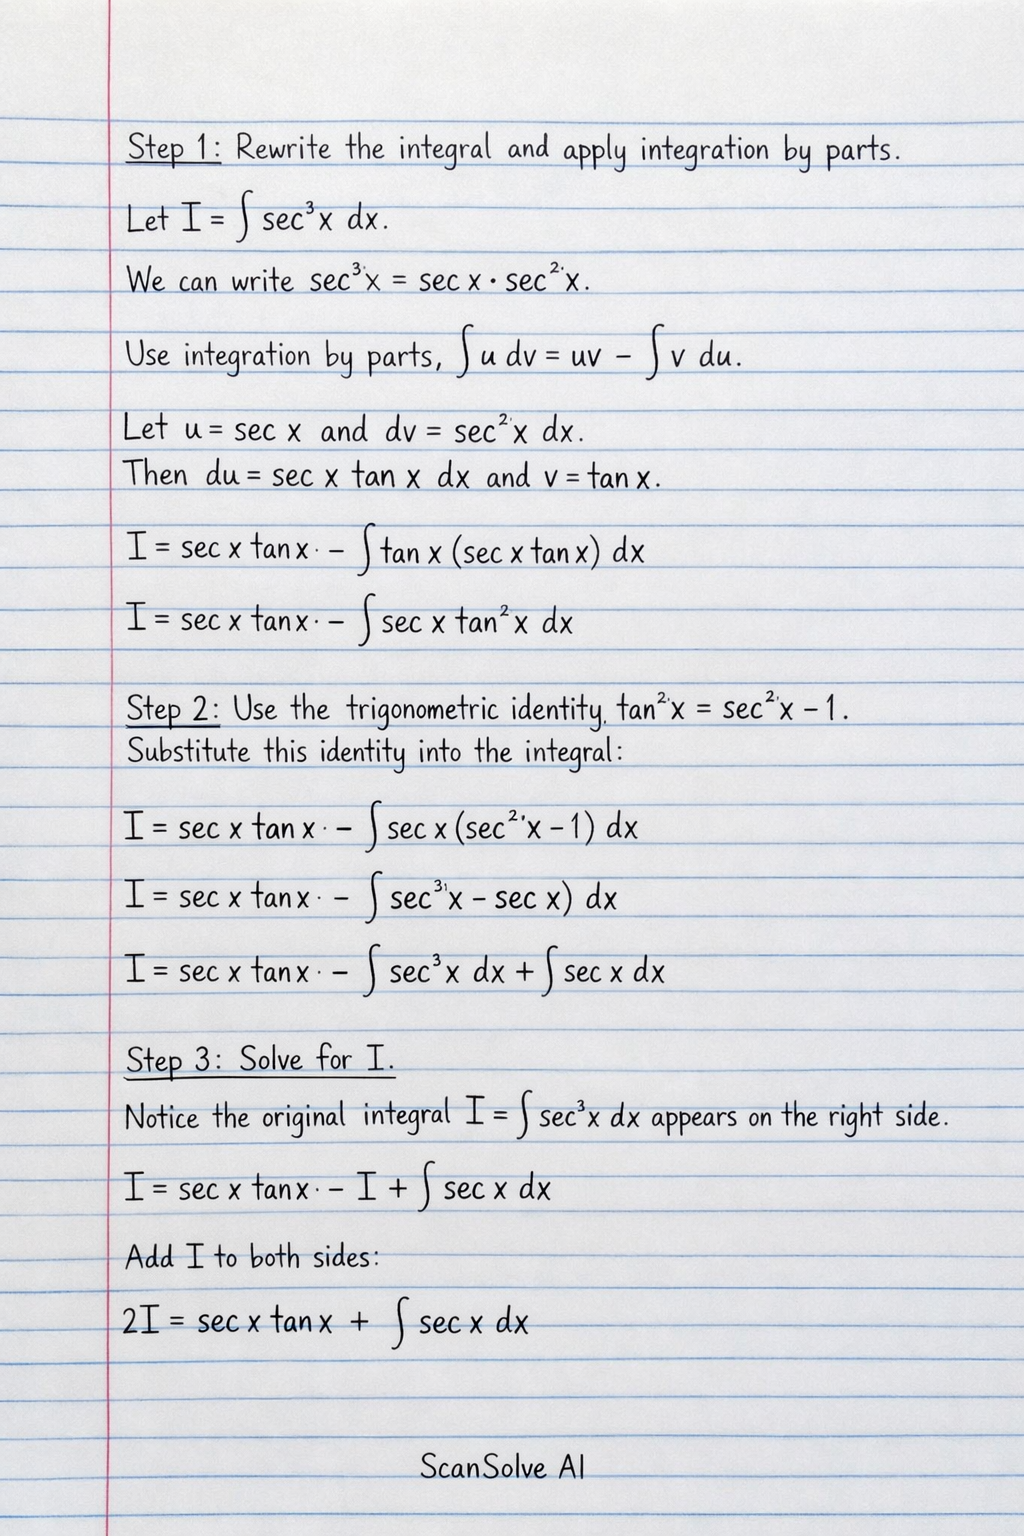 Step 1: Rewrite the integral and apply integration by parts.
Let I = ∫ sec³x dx.
We can write sec³x = sec x · sec²x.
Use integration by parts, ∫ u dv = uv − ∫ v du.
Let u = sec x and dv = sec²x dx.
Then du = sec x tan x dx and v = tan x.
I = sec x tan x · − ∫ tan x (sec x tan x) dx
I = sec x tan x · − ∫ sec x tan²x dx
Step 2: Use the trigonometric identity, tan²x = sec²x − 1.
Substitute this identity into the integral:
I = sec x tan x · − ∫ sec x (sec²x − 1) dx
I = sec x tan x · − ∫ sec³x − sec x) dx
I = sec x tan x · − ∫ sec³x dx + ∫ sec x dx
Step 3: Solve for I.
Notice the original integral I = ∫ sec³x dx appears on the right side.
I = sec x tan x · − I + ∫ sec x dx
Add I to both sides:
2I = sec x tan x + ∫ sec x dx
ScanSolve AI